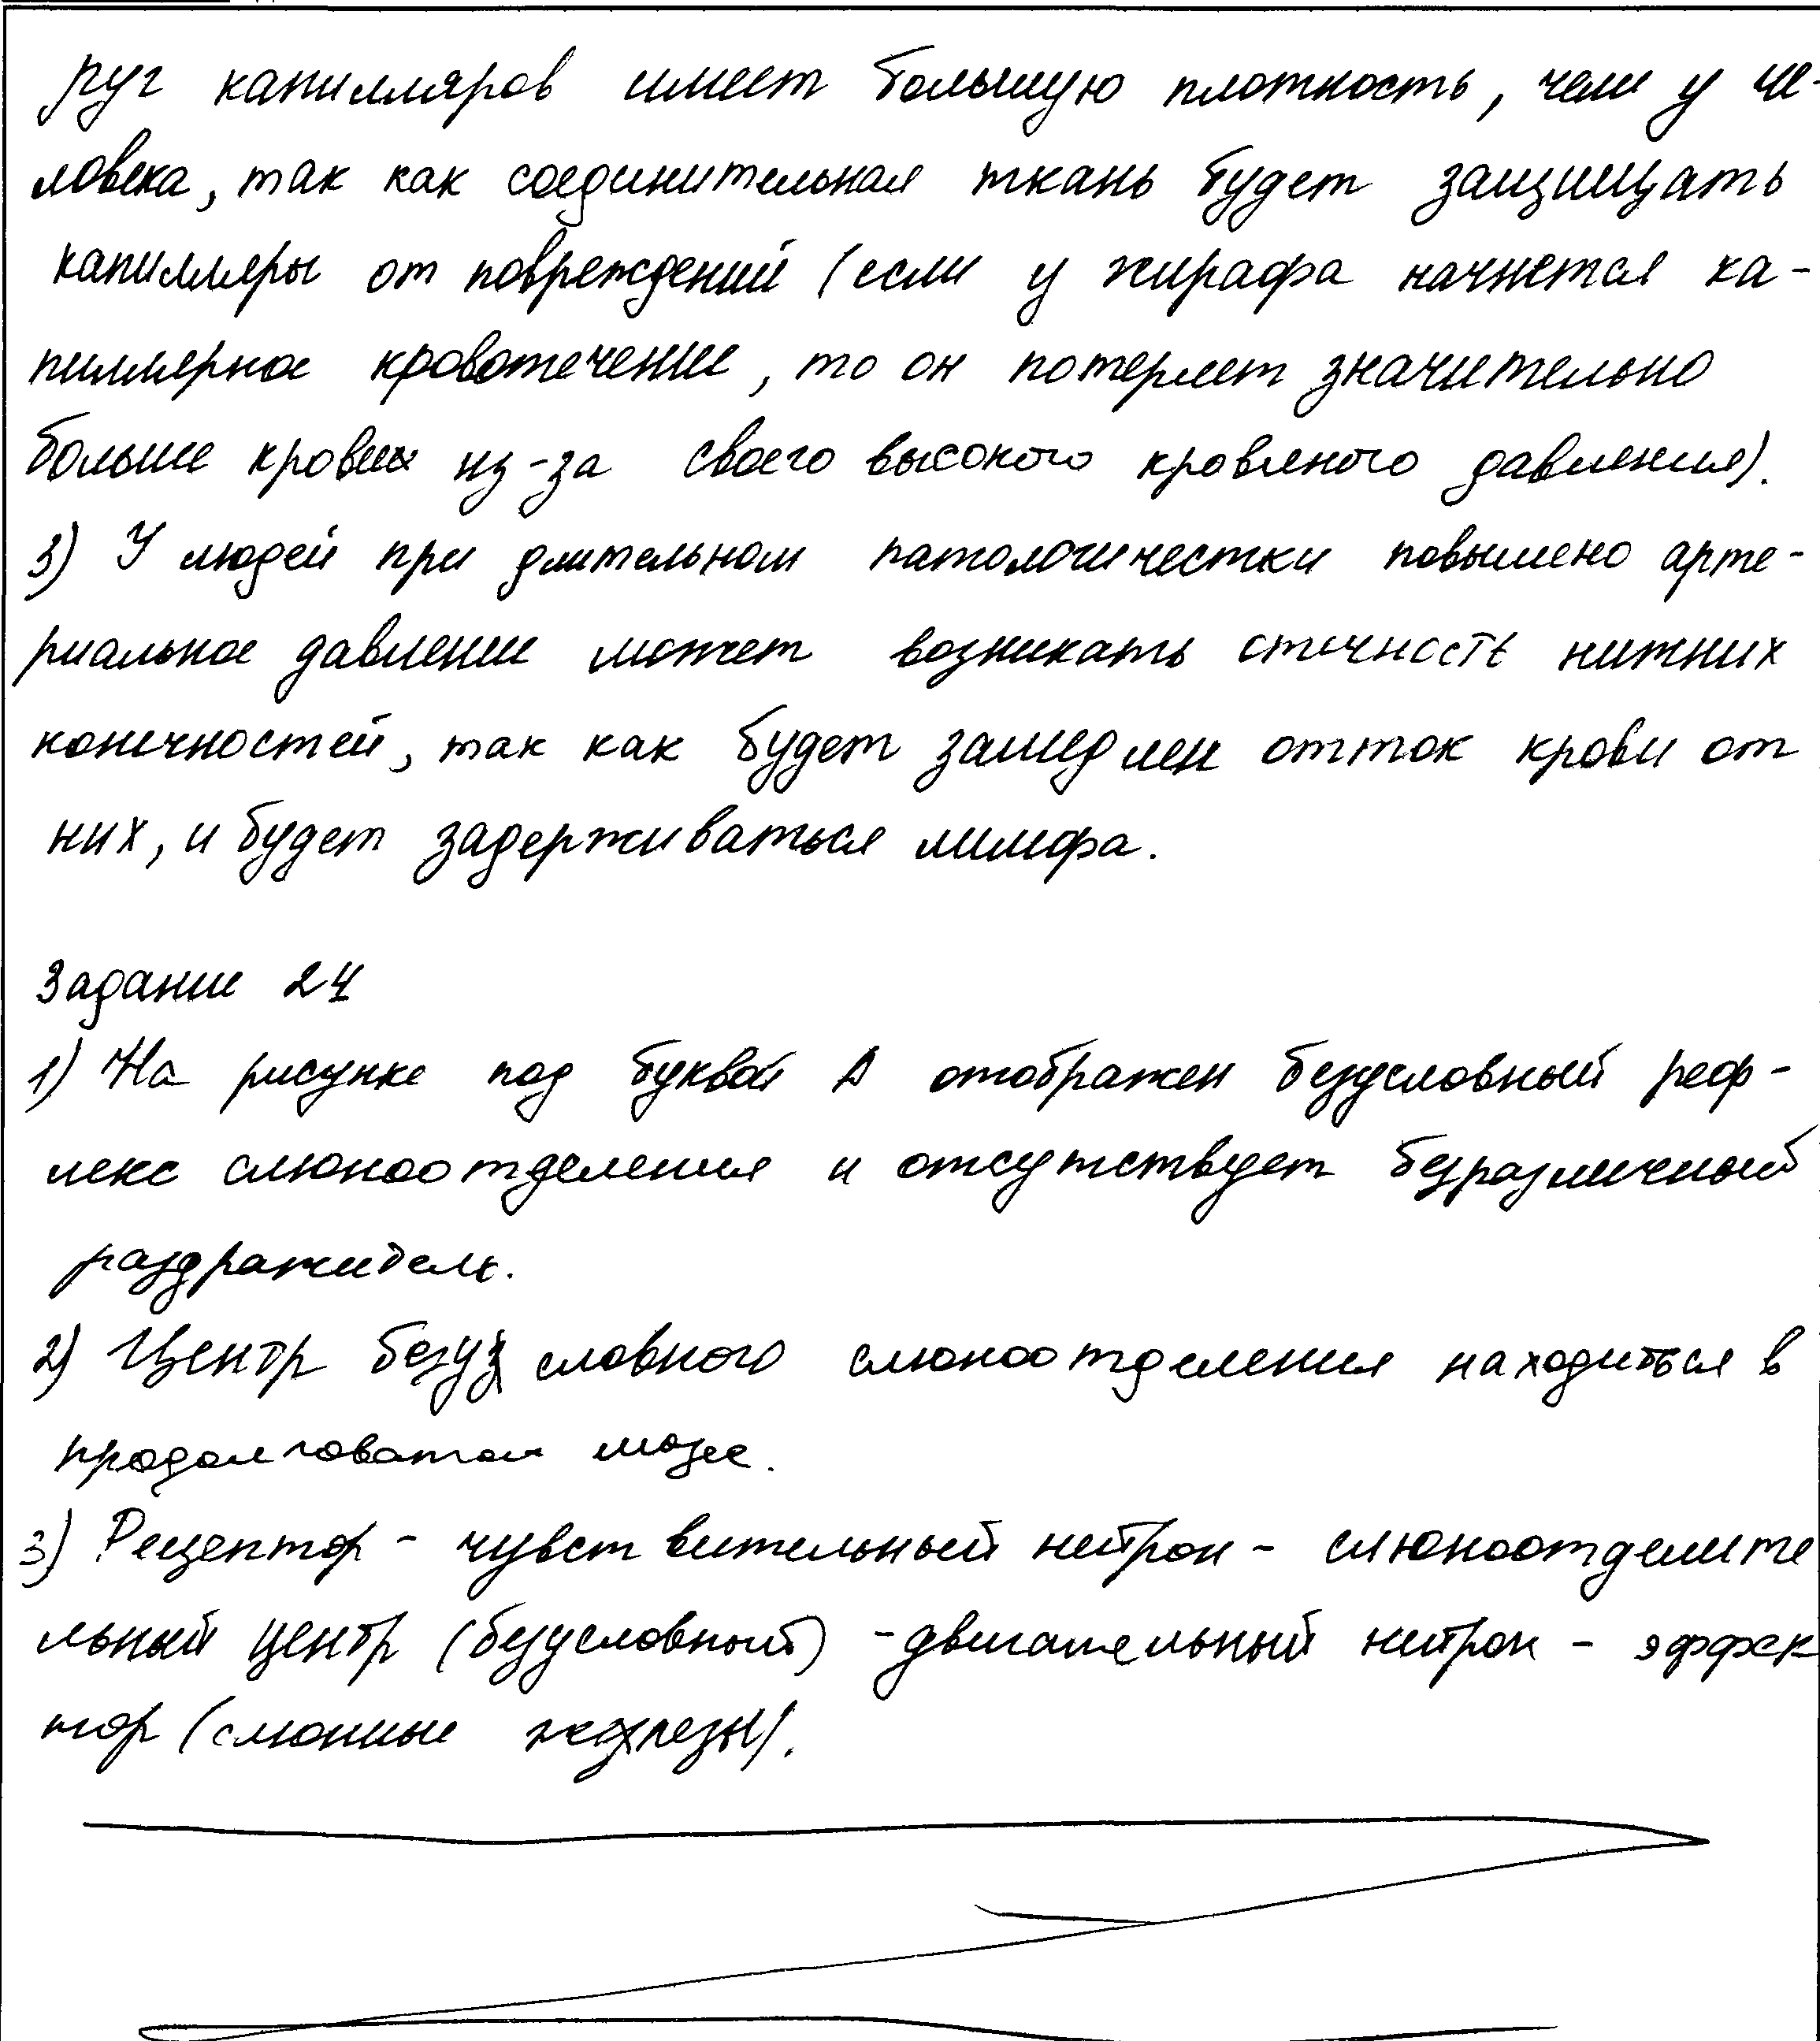 руг капилляров имеет большую плотность, чем у че-
ловека, так как соединительная ткань будет защищать
капилляры от повреждений (если у жирафа начнется ка-
пиллярное кровотечение, то он потеряет значительно
больше крови из-за своего высокого кровяного давления).
3) У людей при длительном патологичестки повышено арте-
риальное давление может возникать отечность нижних
конечностей, так как будет замедлен отток крови от
них, и будет задерживаться лимфа.
Задание 24
1) На рисунке под буквой А отображен безусловный реф-
лекс слюноотделения и отсутствует безразличный
раздражитель.
2) Центр безусловного слюноотделения находиться в
продолговатом мозге.
3) Рецептор - чувствительный нейрон - слюноотделите
льный центр (безусловный) - двигательный нейрон - эффек
тор (слюнные железы).